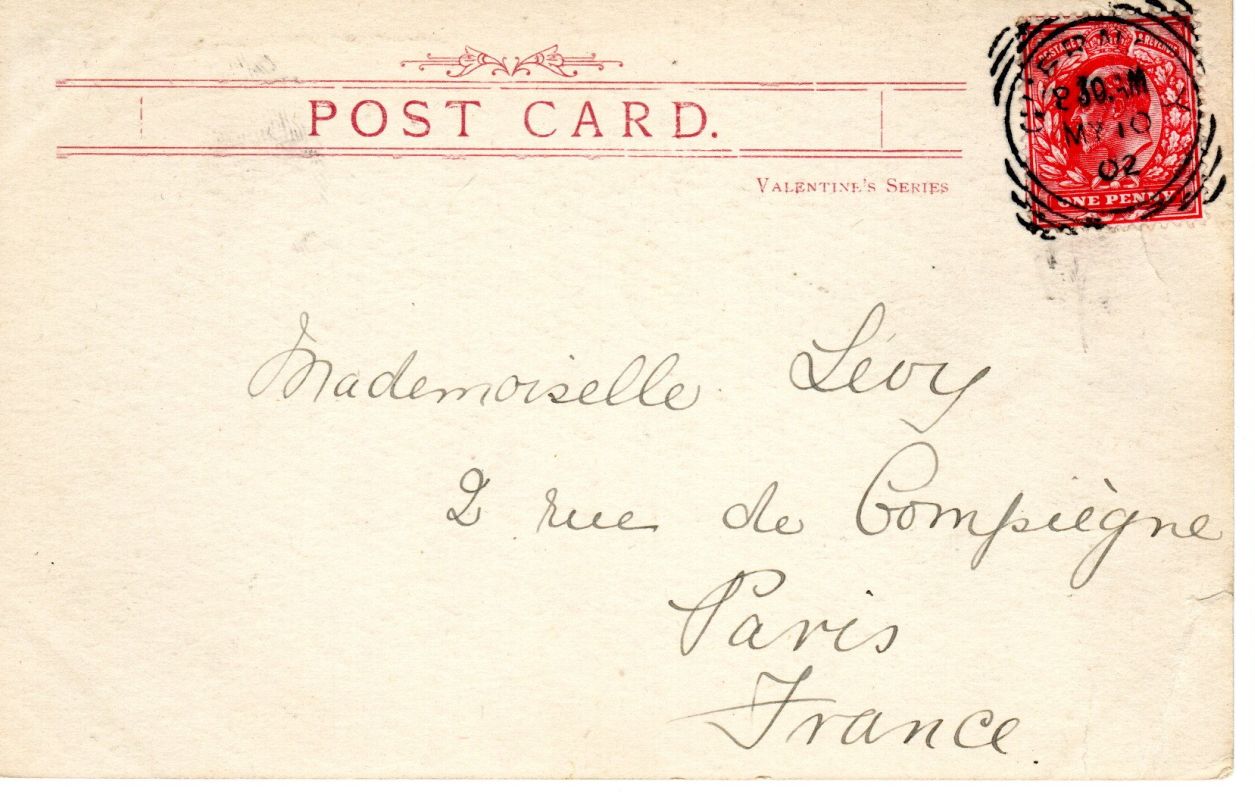 POSTAGE & REVENUE
MY 10
02
ONE PENNY
POST CARD.
VALENTINE'S SERIES
Mademoiselle Lévy
2 rue de Compiègne
Paris
France